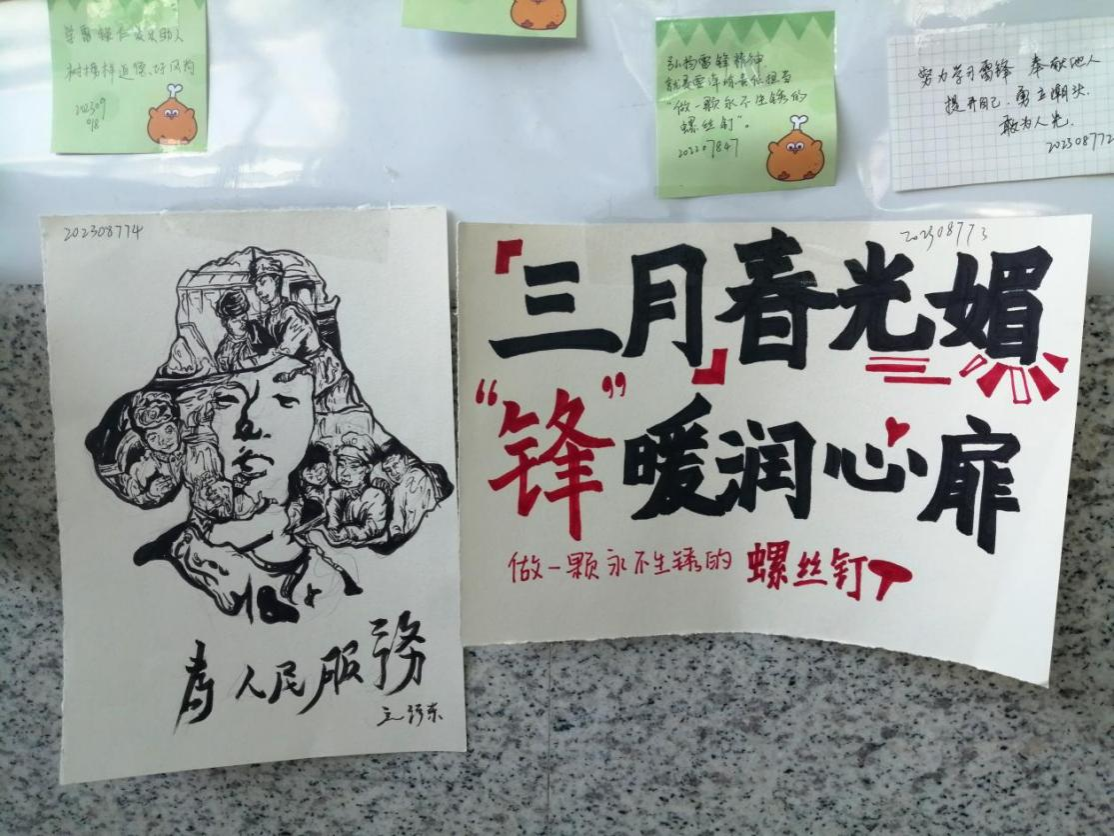 学雷锋仁爱助人
树榜样道德好风尚
202309
弘扬雷锋精神
就是要肩负责任担当
“做一颗永不生锈的
螺丝钉”。
202207847
努力学习雷锋 奉献他人
提升自己,勇立潮头,
敢为人先.
202308772
202308774
为人民服務
毛泽东
202308773
「三月」春光媚
“锋”暖润心扉
做一颗永不生锈的螺丝钉